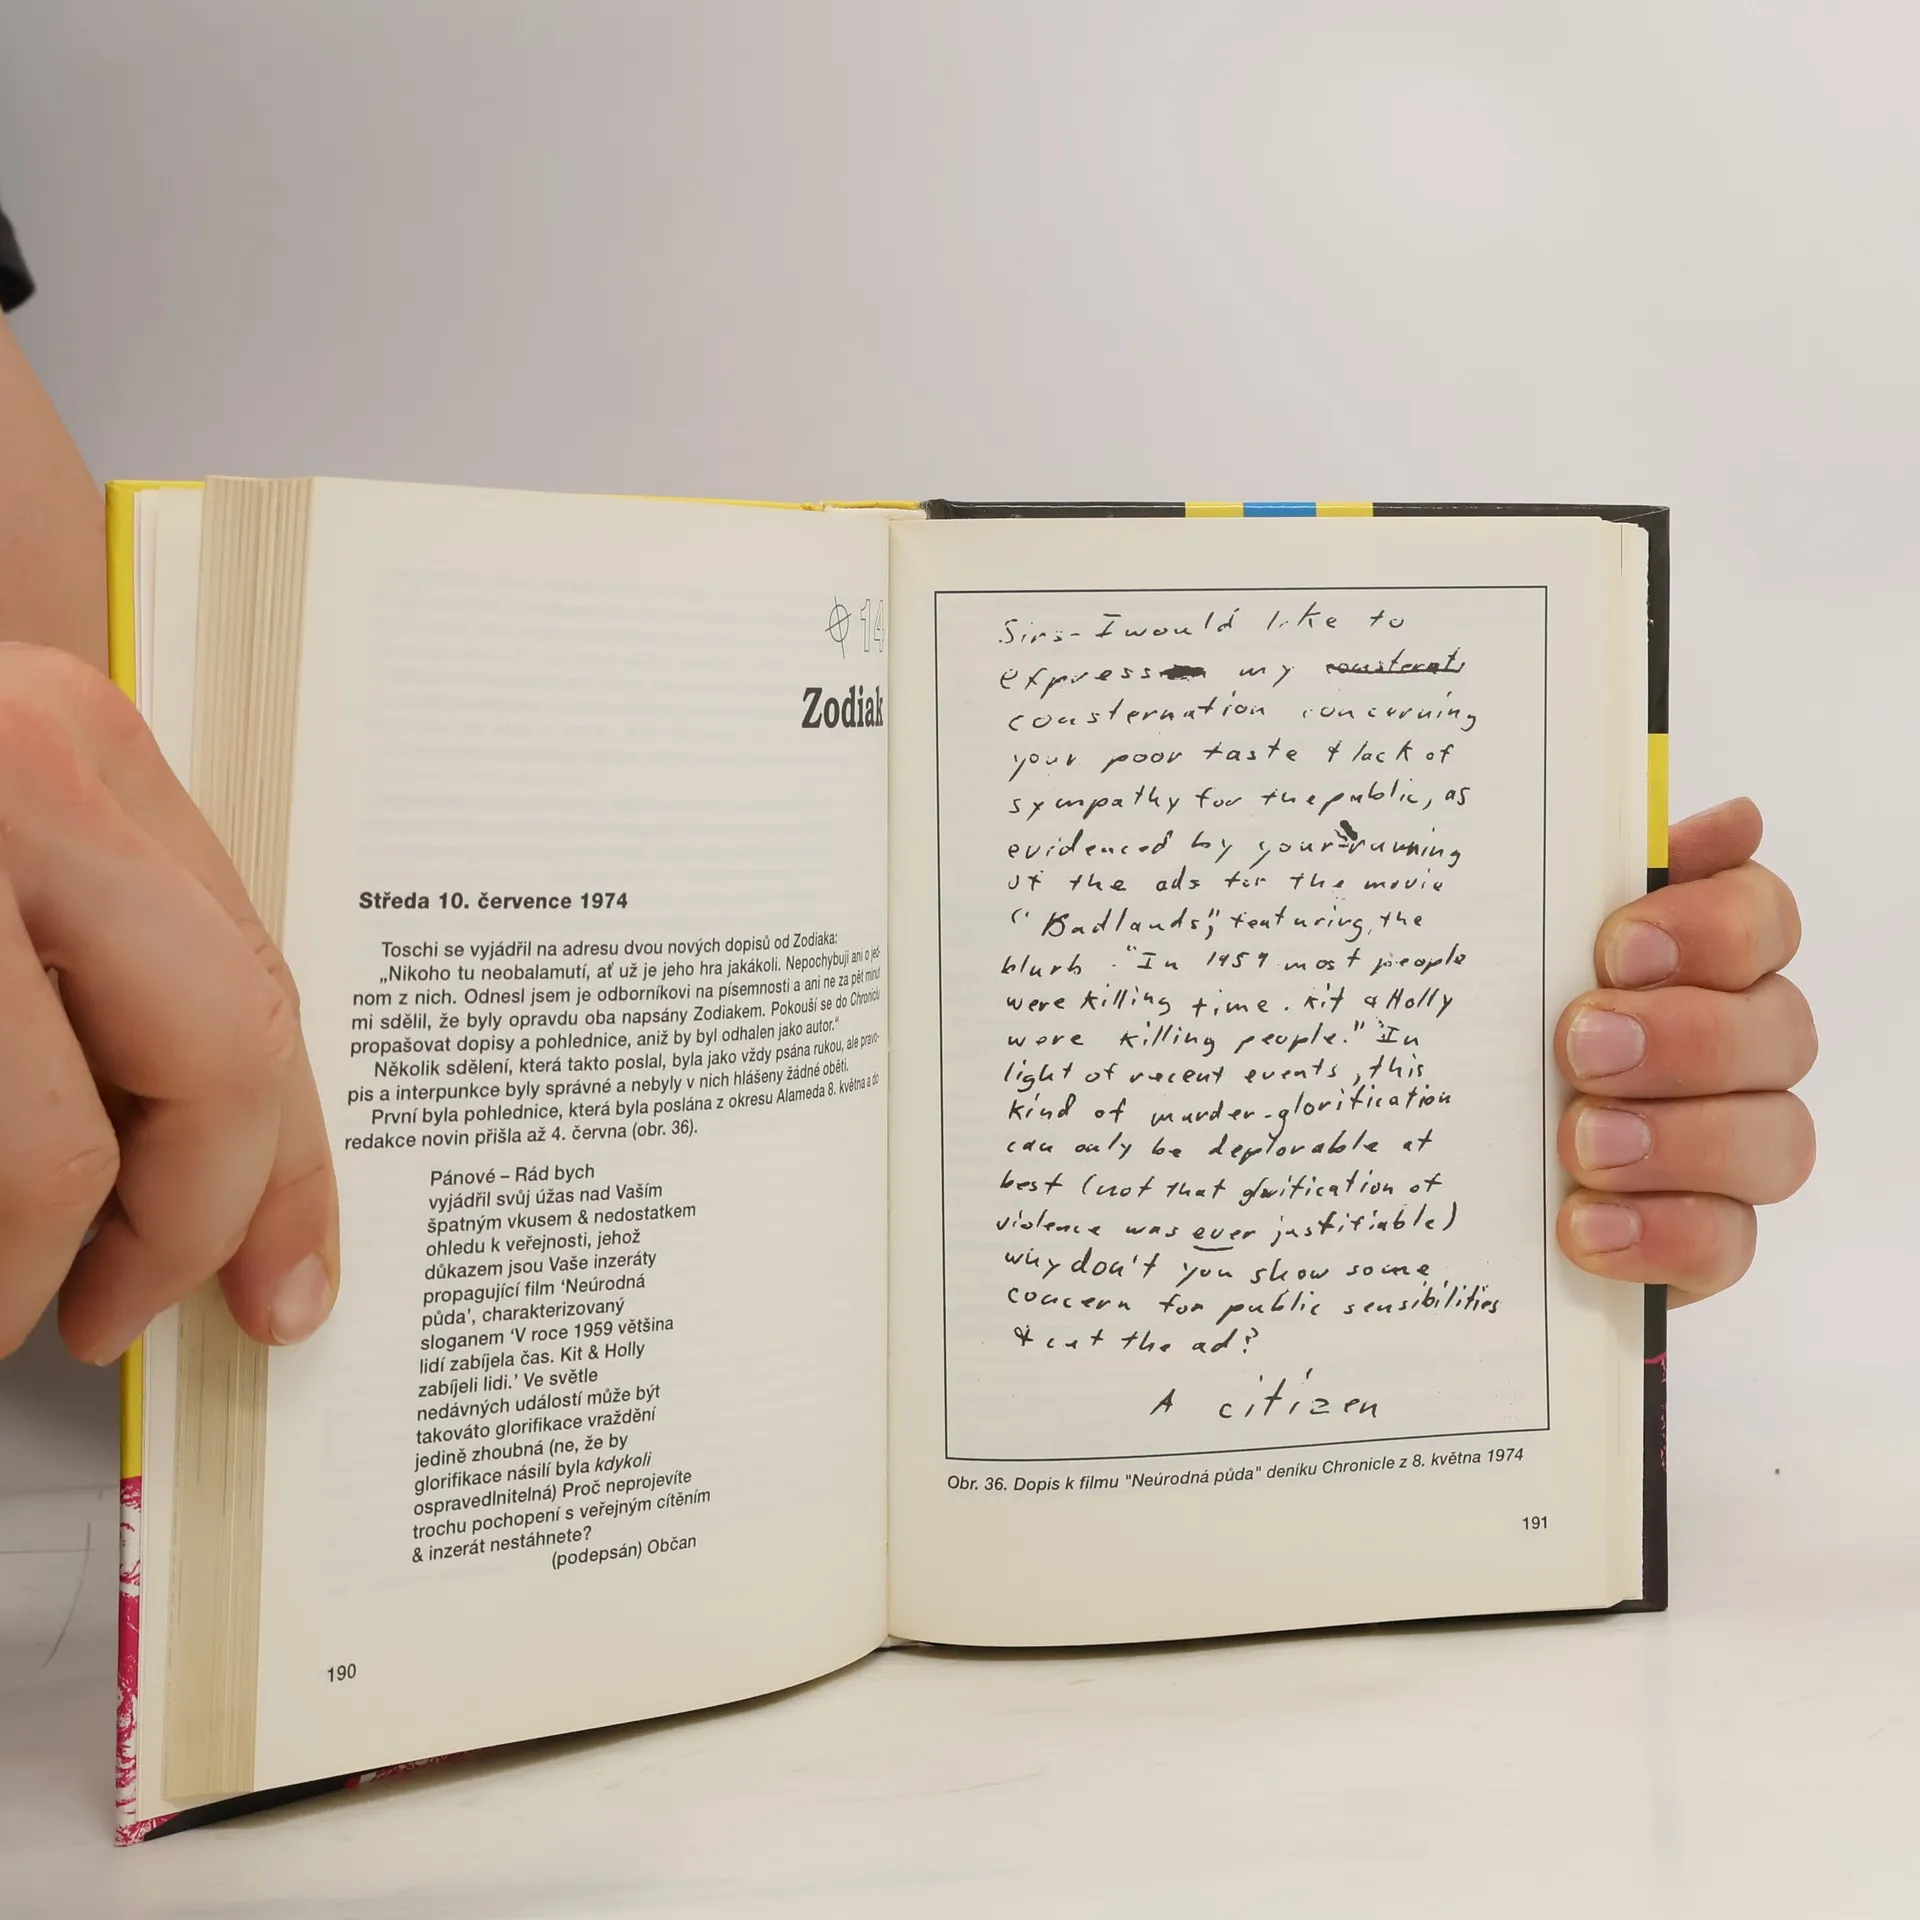 14
Zodiak
Středa 10. července 1974
Toschi se vyjádřil na adresu dvou nových dopisů od Zodiaka:
„Nikoho tu neobalamutí, ať už je jeho hra jakákoli. Nepochybuji ani o jed-
nom z nich. Odnesl jsem je odborníkovi na písemnosti a ani ne za pět minut
mi sdělil, že byly opravdu oba napsány Zodiakem. Pokouší se do Chroniclu
propašovat dopisy a pohlednice, aniž by byl odhalen jako autor.“
Několik sdělení, která takto poslal, byla jako vždy psána rukou, ale pravo-
pis a interpunkce byly správné a nebyly v nich hlášeny žádné oběti.
První byla pohlednice, která byla poslána z okresu Alameda 8. května a do
redakce novin přišla až 4. června (obr. 36).
Pánové – Rád bych
vyjádřil svůj úžas nad Vaším
špatným vkusem & nedostatkem
ohledu k veřejnosti, jehož
důkazem jsou Vaše inzeráty
propagující film ‘Neúrodná
půda’, charakterizovaný
sloganem ‘V roce 1959 většina
lidí zabíjela čas. Kit & Holly
zabíjeli lidi.’ Ve světle
nedávných událostí může být
takováto glorifikace vraždění
jedině zhoubná (ne, že by
glorifikace násilí byla kdykoli
ospravedlnitelná) Proč neprojevíte
trochu pochopení s veřejným cítěním
& inzerát nestáhnete?
(podepsán) Občan
190
Sirs- I would like to
express my consternati
consternation concerning
your poor taste & lack of
sympathy for the public, as
evidenced by your running
of the ads for the movie
"Badlands", featuring the
blurb - "In 1959 most people
were killing time. Kit & Holly
were killing people." In
light of recent events, this
kind of murder-glorification
can only be deplorable at
best (not that glorification of
violence was ever justifiable)
why don't you show some
concern for public sensibilities
& cut the ad?
A citizen
Obr. 36. Dopis k filmu "Neúrodná půda" deníku Chronicle z 8. května 1974
191